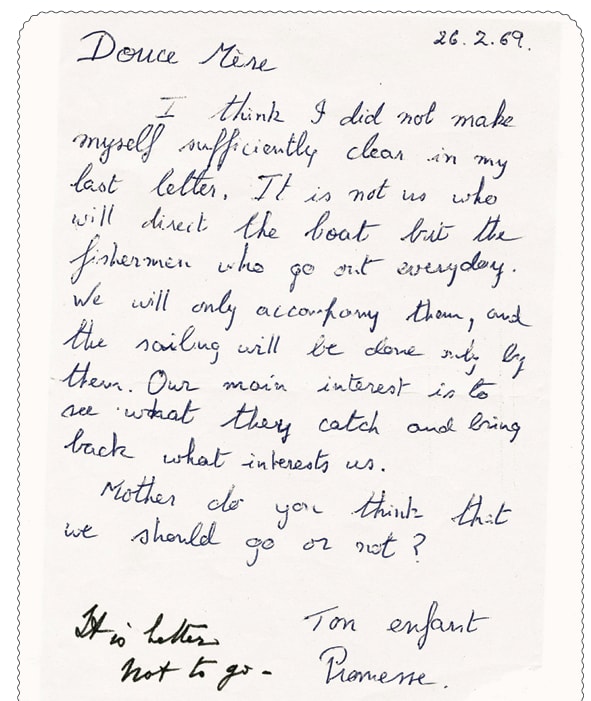 26.2.69.
Douce Mère
I think I did not make
myself sufficiently clear in my
last letter. It is not us who
will direct the boat but the
fishermen who go out everyday.
We will only accompany them, and
the sailing will be done only by
them. Our main interest is to
see what they catch and bring
back what interests us.
Mother do you think that
we should go or not?
Ton enfant
Promesse.
It is better
not to go-